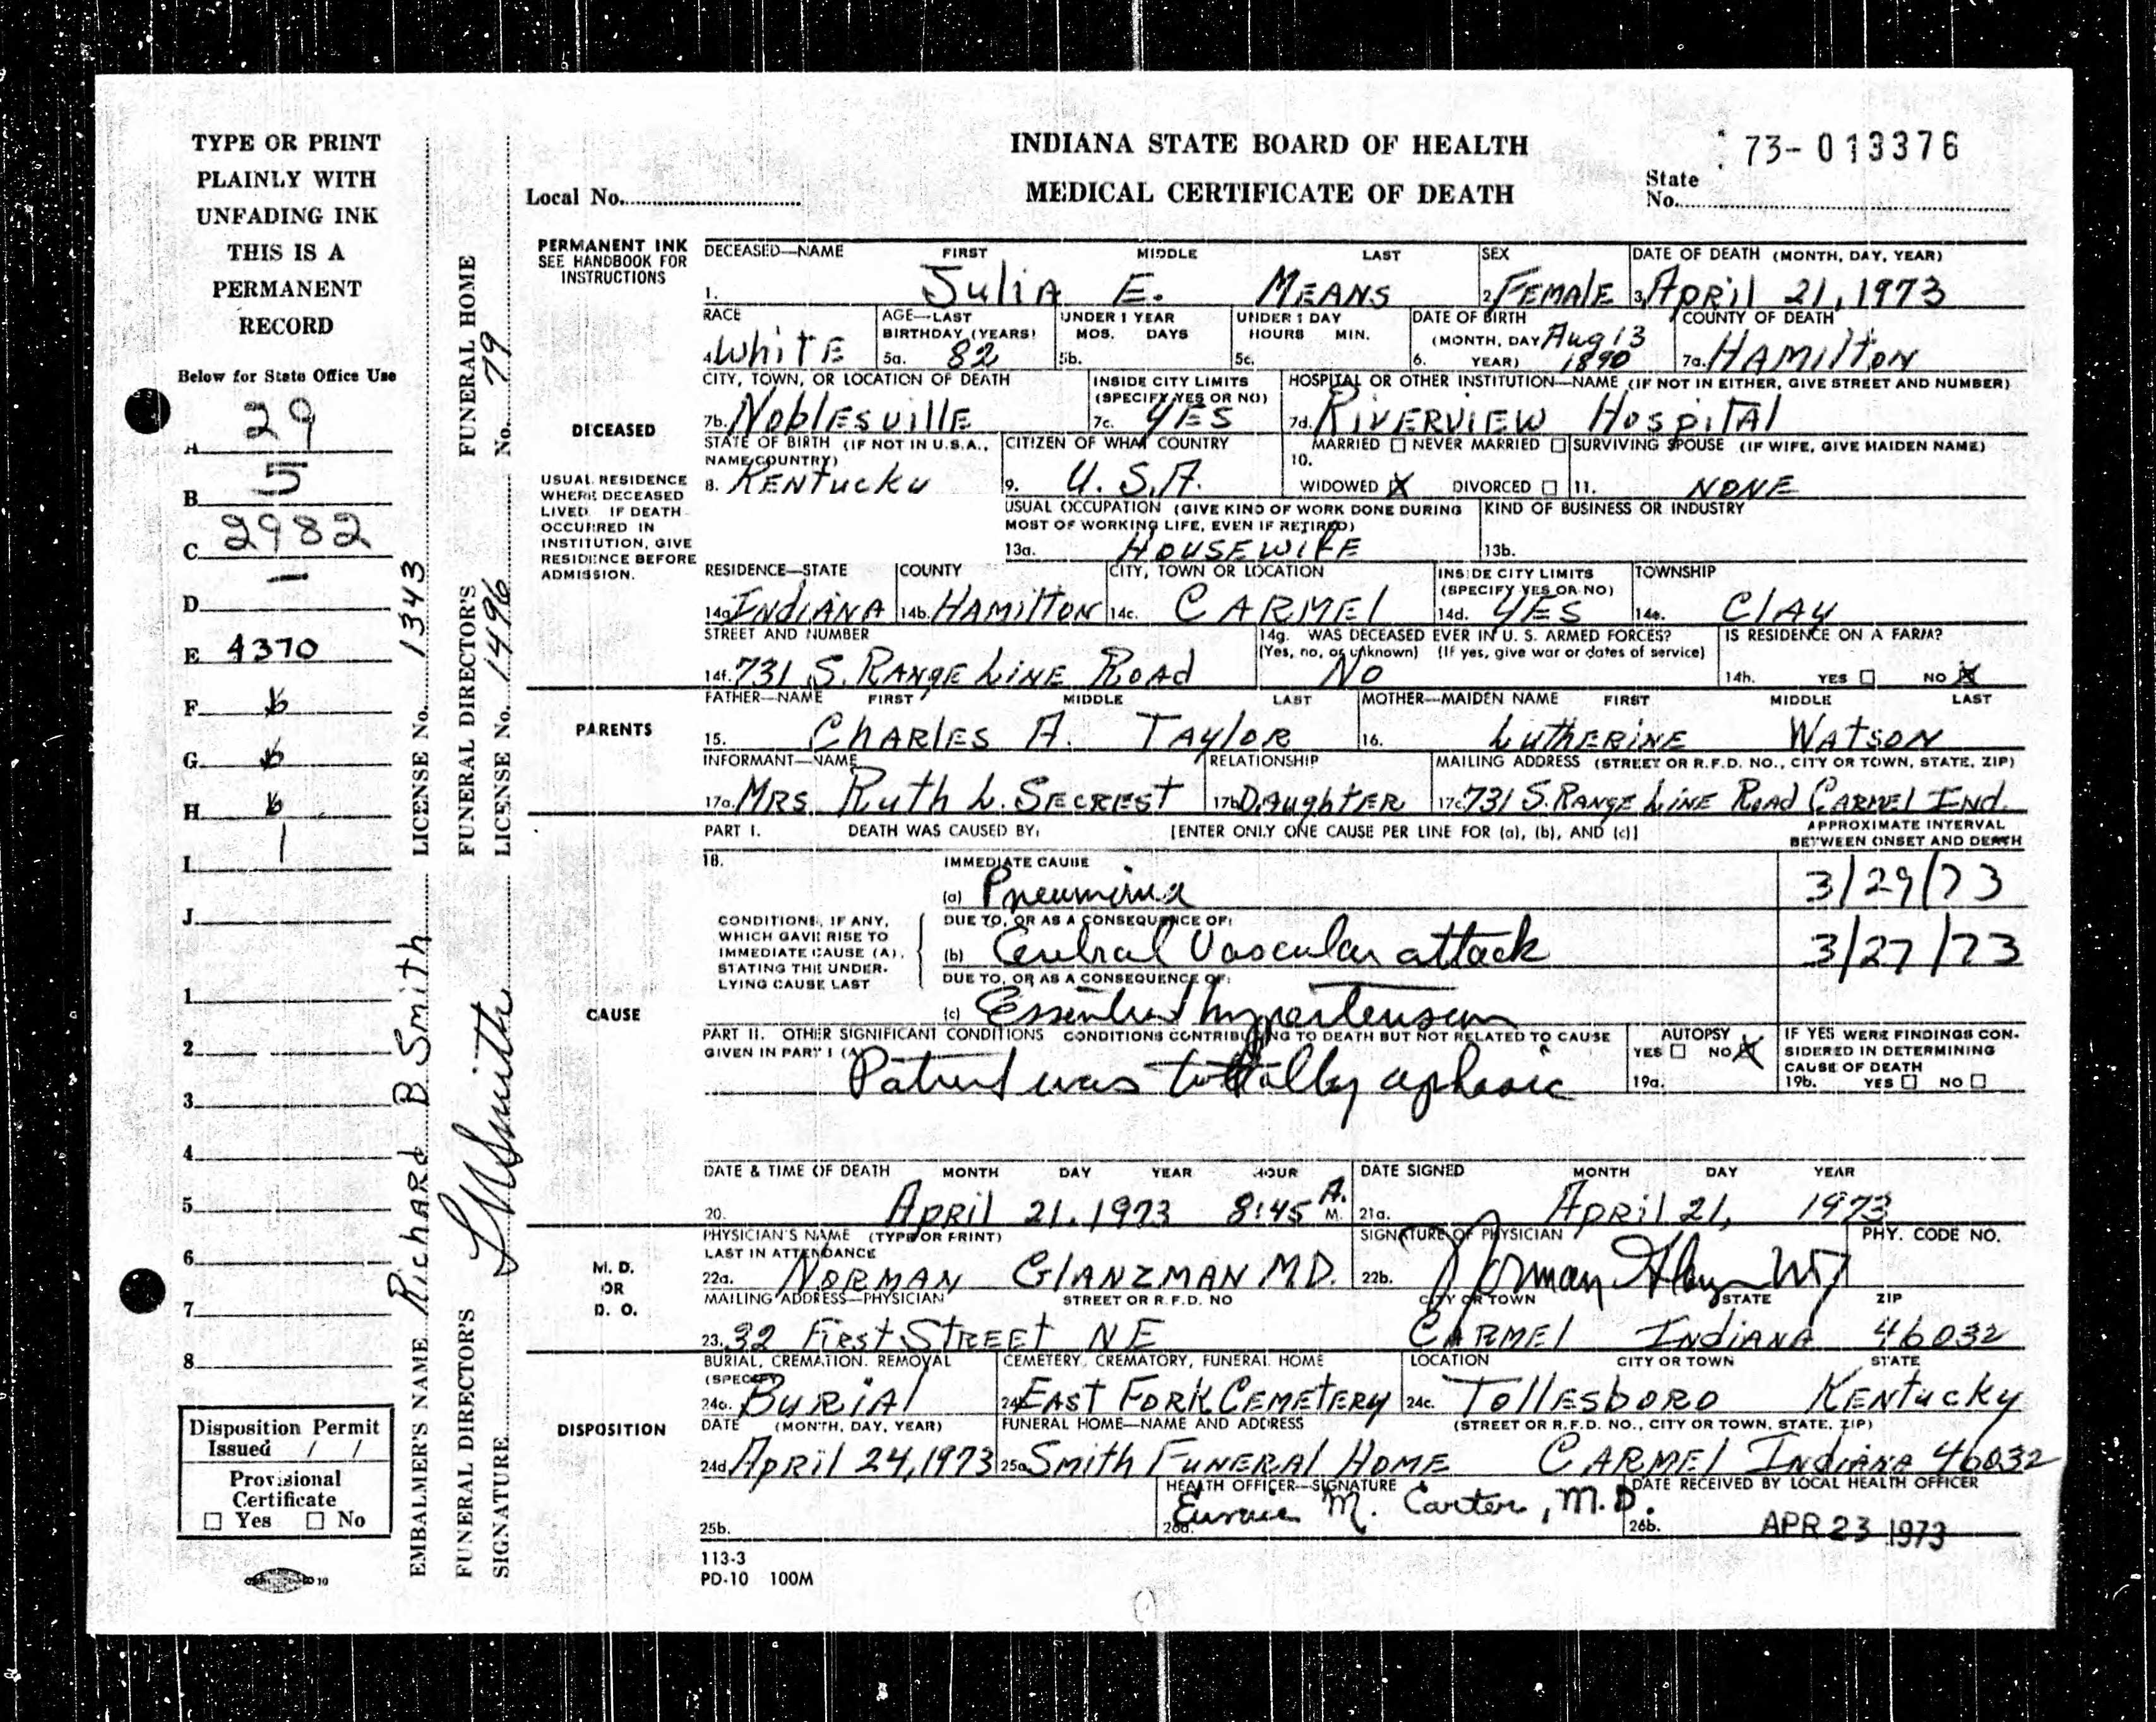 TYPE OR PRINT
PLAINLY WITH
UNFADING INK
THIS IS A
PERMANENT
RECORD
Below for State Office Use
A 29
B 5
C 2982
D —
E 4370
F
G
H
I 1
J
1
2
3
4
5
6
7
8
Disposition Permit
Issued / /
Provisional
Certificate
☐ Yes ☐ No
EMBALMER'S NAME Richard B Smith LICENSE No. 1343
FUNERAL DIRECTOR'S FUNERAL DIRECTOR'S FUNERAL HOME
SIGNATURE LICENSE No. 1496 No. 79
INDIANA STATE BOARD OF HEALTH
MEDICAL CERTIFICATE OF DEATH
Local No.
73-013376
State
No.
PERMANENT INK
SEE HANDBOOK FOR
INSTRUCTIONS
DECEASED—NAME FIRST MIDDLE LAST SEX DATE OF DEATH (MONTH, DAY, YEAR)
1. Julia E. Means 2. Female 3. April 21, 1973
RACE AGE—LAST BIRTHDAY (YEARS) UNDER 1 YEAR MOS. DAYS UNDER 1 DAY HOURS MIN. DATE OF BIRTH (MONTH, DAY YEAR) COUNTY OF DEATH
4. White 5a. 82 5b. 5c. 6. Aug 13 1890 7a. Hamilton
CITY, TOWN, OR LOCATION OF DEATH INSIDE CITY LIMITS (SPECIFY YES OR NO) HOSPITAL OR OTHER INSTITUTION—NAME (IF NOT IN EITHER, GIVE STREET AND NUMBER)
DICEASED
7b. Noblesville 7c. Yes 7d. Riverview Hospital
STATE OF BIRTH (IF NOT IN U.S.A., NAME COUNTRY) CITIZEN OF WHAT COUNTRY MARRIED ☐ NEVER MARRIED ☐ SURVIVING SPOUSE (IF WIFE, GIVE MAIDEN NAME)
8. Kentucky 9. U.S.A. 10. WIDOWED ☒ DIVORCED ☐ 11. None
USUAL RESIDENCE
WHERE DECEASED
LIVED. IF DEATH
OCCURRED IN
INSTITUTION, GIVE
RESIDENCE BEFORE
ADMISSION.
USUAL OCCUPATION (GIVE KIND OF WORK DONE DURING MOST OF WORKING LIFE, EVEN IF RETIRED) KIND OF BUSINESS OR INDUSTRY
13a. Housewife 13b.
RESIDENCE—STATE COUNTY CITY, TOWN OR LOCATION INSIDE CITY LIMITS (SPECIFY YES OR NO) TOWNSHIP
14a. Indiana 14b. Hamilton 14c. Carmel 14d. Yes 14e. Clay
STREET AND NUMBER 14g. WAS DECEASED EVER IN U. S. ARMED FORCES? IS RESIDENCE ON A FARM?
(Yes, no, or unknown) (If yes, give war or dates of service)
14f. 731 S. Range Line Road No 14h. YES ☐ NO ☒
PARENTS
FATHER—NAME FIRST MIDDLE LAST MOTHER—MAIDEN NAME FIRST MIDDLE LAST
15. Charles A. Taylor 16. Lutherine Watson
INFORMANT—NAME RELATIONSHIP MAILING ADDRESS (STREET OR R.F.D. NO., CITY OR TOWN, STATE, ZIP)
17a. Mrs Ruth L. Secrest 17b. Daughter 17c. 731 S. Range Line Road Carmel Ind.
PART I. DEATH WAS CAUSED BY: [ENTER ONLY ONE CAUSE PER LINE FOR (a), (b), AND (c)] APPROXIMATE INTERVAL BETWEEN ONSET AND DEATH
18. IMMEDIATE CAUSE
(a) Pneumonia 3/29/73
CONDITIONS, IF ANY,
WHICH GAVE RISE TO
IMMEDIATE CAUSE (A),
STATING THE UNDER-
LYING CAUSE LAST
DUE TO, OR AS A CONSEQUENCE OF:
(b) Cerebral Vascular attack 3/27/73
DUE TO, OR AS A CONSEQUENCE OF:
CAUSE
(c) Essential hypertension
PART II. OTHER SIGNIFICANT CONDITIONS CONDITIONS CONTRIBUTING TO DEATH BUT NOT RELATED TO CAUSE GIVEN IN PART I (A)
Patient was totally aphasic
AUTOPSY YES ☐ NO ☒ 19a.
IF YES WERE FINDINGS CON-
SIDERED IN DETERMINING
CAUSE OF DEATH
19b. YES ☐ NO ☐
DATE & TIME OF DEATH MONTH DAY YEAR HOUR DATE SIGNED MONTH DAY YEAR
20. April 21, 1973 8:45 A. M. 21a. April 21, 1973
PHYSICIAN'S NAME (TYPE OR PRINT) LAST IN ATTENDANCE SIGNATURE OF PHYSICIAN PHY. CODE NO.
M. D.
OR
D. O.
22a. Norman Glanzman MD. 22b.
MAILING ADDRESS—PHYSICIAN STREET OR R.F.D. NO CITY OR TOWN STATE ZIP
23. 32 First Street NE Carmel Indiana 46032
BURIAL, CREMATION, REMOVAL (SPECIFY) CEMETERY, CREMATORY, FUNERAL HOME LOCATION CITY OR TOWN STATE
24a. Burial 24b. East Fork Cemetery 24c. Tollesboro Kentucky
DISPOSITION
DATE (MONTH, DAY, YEAR) FUNERAL HOME—NAME AND ADDRESS (STREET OR R.F.D. NO., CITY OR TOWN, STATE, ZIP)
24d. April 24, 1973 25a. Smith Funeral Home Carmel Indiana 46032
HEALTH OFFICER—SIGNATURE DATE RECEIVED BY LOCAL HEALTH OFFICER
25b. 26a. M. Carter, M.D. 26b. APR 23 1973
113-3
PD-10 100M